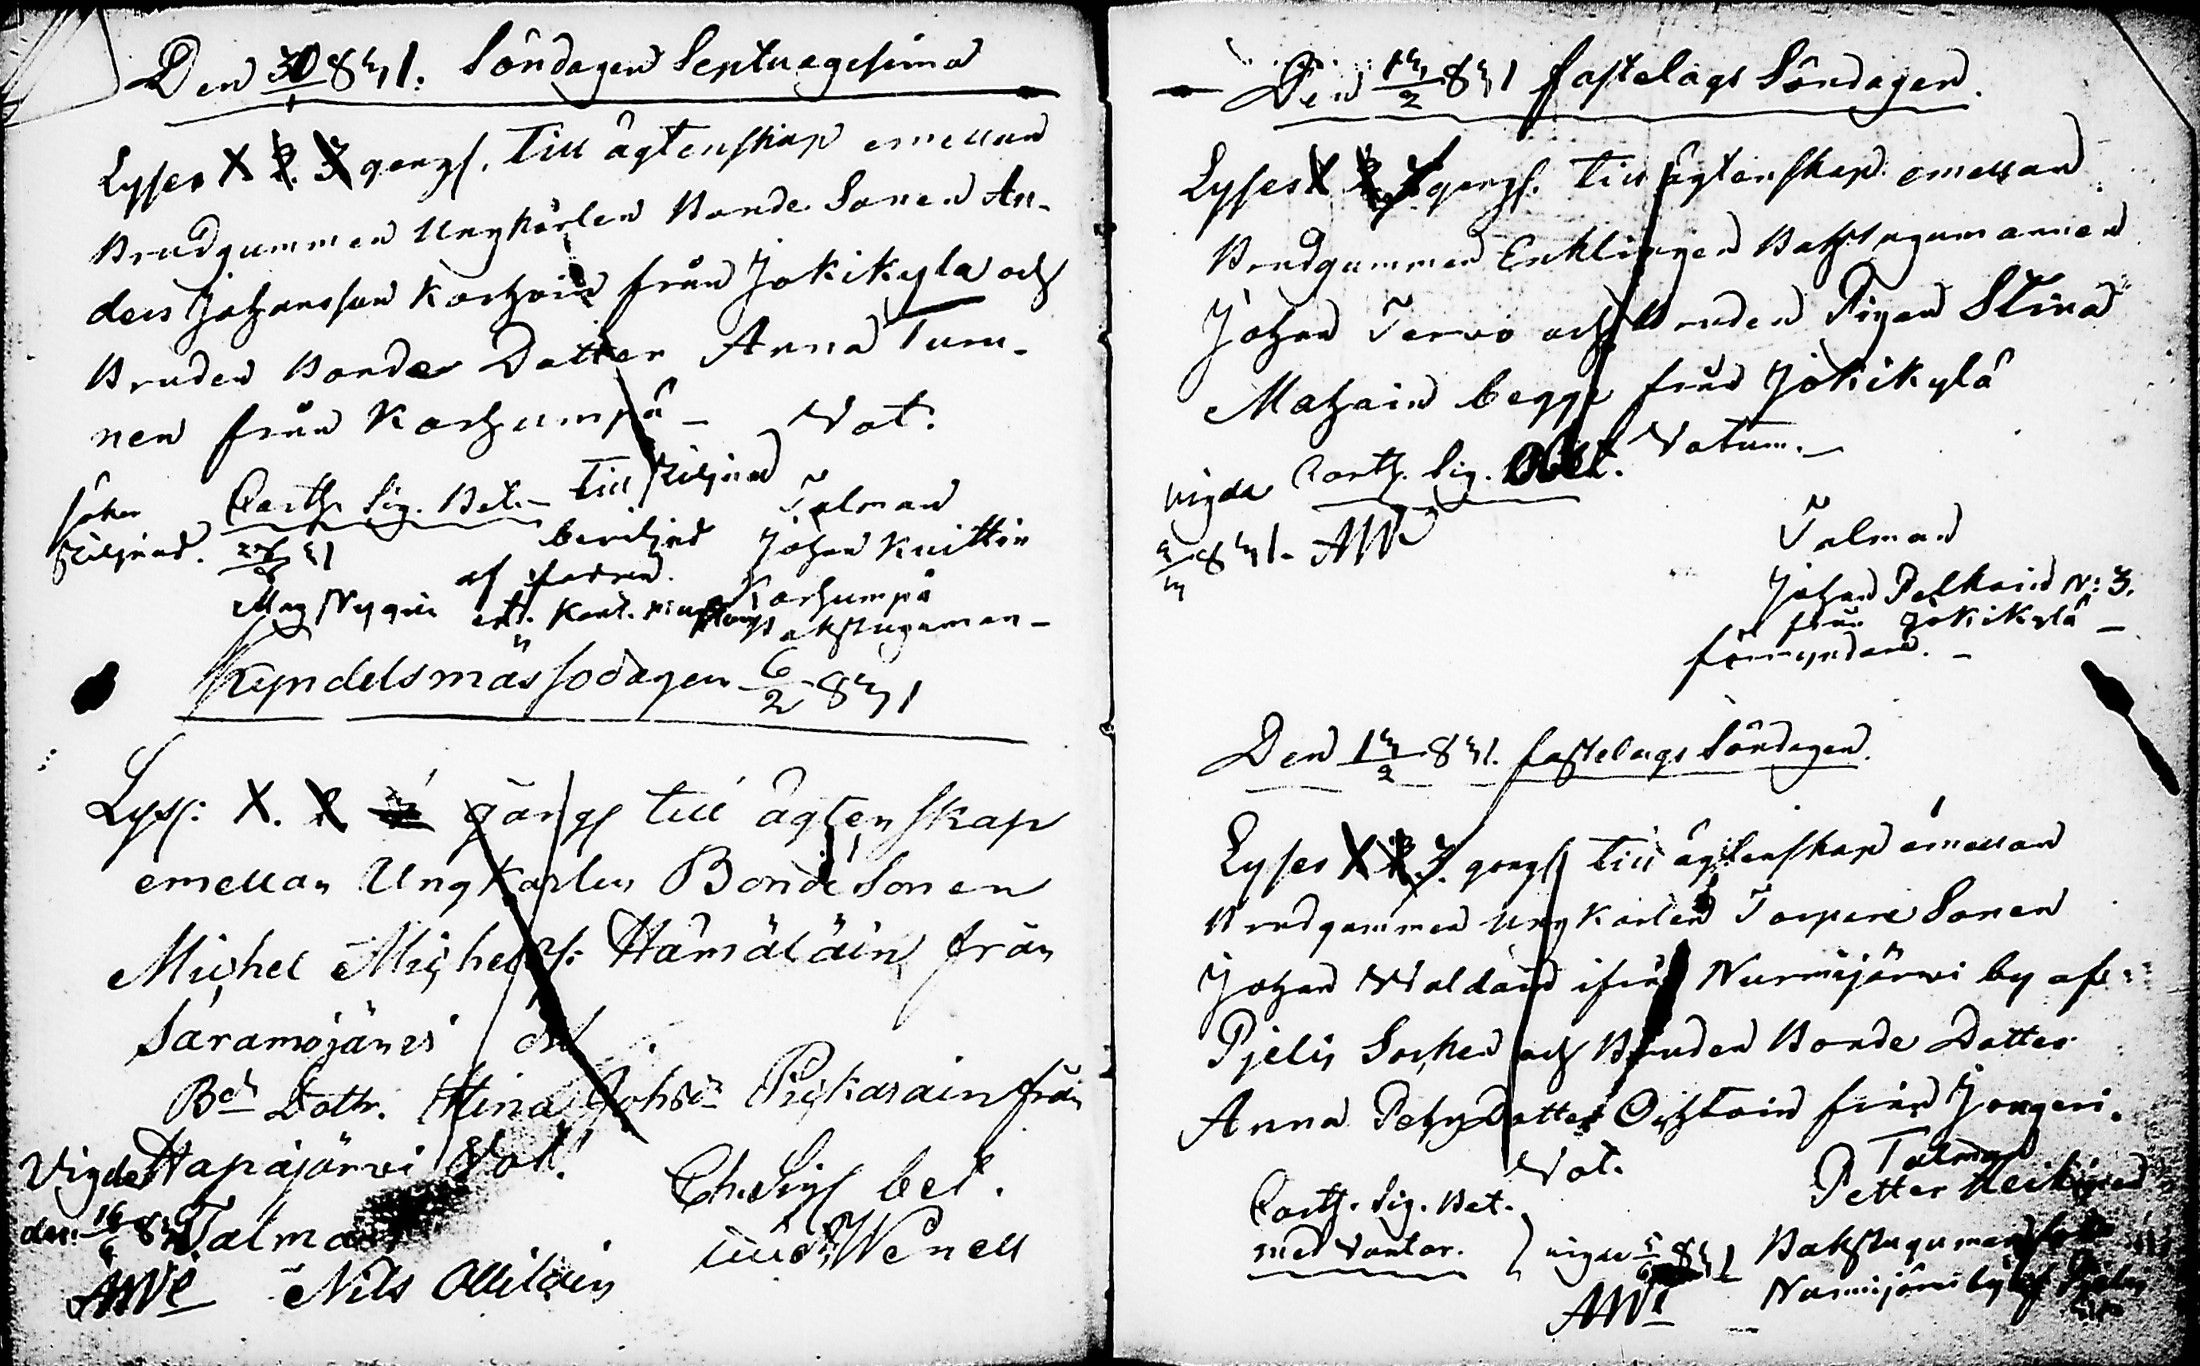 Den 30/1 831. Söndagen Septuagesima
Lyses X 2. 3 gångs. Till ägtenskap emellan
Brudgummen Ungkarlen Bonde Sonen An-
ders Johansson Korhoin från Jokikyla och
Bruden Bonde Dotter Anna Turu-
nen från Korhumpä – Vot.
söker Skiljnad. Contr. Sig. Bet. – Till skiljnad
beviljad
af
Talman
Johan Knittin
Korhumpä
Bakstuguman –
Kyndelsmässodagen 6/2 831
Lyss: X. 2 gångs till ägtenskap
emellan Ungkarlen Bonde Sonen
Michel Michelss: Hämäläin från
Saramojärvi och
Bde Dottr. Stina Johsdr Pitkäräin från
Hapajärvi Vot.
Vigde den 16/6 831 Talman
AWe Nils Ollilain
Ch. Sigs bet.
Wenell
Den 13/2 831 fastelags Söndagen.
Lyses X 2 3 gångs. Till ägtenskap emellan
Brudgummen Enklingen Bakstugumannen
Johan Tervo och Bruden Pigan Stina
Mahain begge från Jokikylä
Vigde Contr. Sig. Bet. Votum. –
831. AWe
Talman
Johan Pelkoin N: 3.
från Jokikylä –
förmyndare. –
Den 13/2 831. fastelags Söndagen.
Lyses X 2. 3. gångs till ägtenskap emellan
Brudgummen Ungkarlen Torpare Sonen
Johan Woldain ifrån Nurmijärvi by af
Pjelis Socken och Bruden Bonde Dotter
Anna Pehrs Dotter Ohtoin från Jongeri.
Vot.
Contr. Sig. Bet.
med Vantar.
vigde 5/6 831
AWe
Talman
Petter Heikinen
Bakstuguman från
Nurmijärvi by af Pjelis